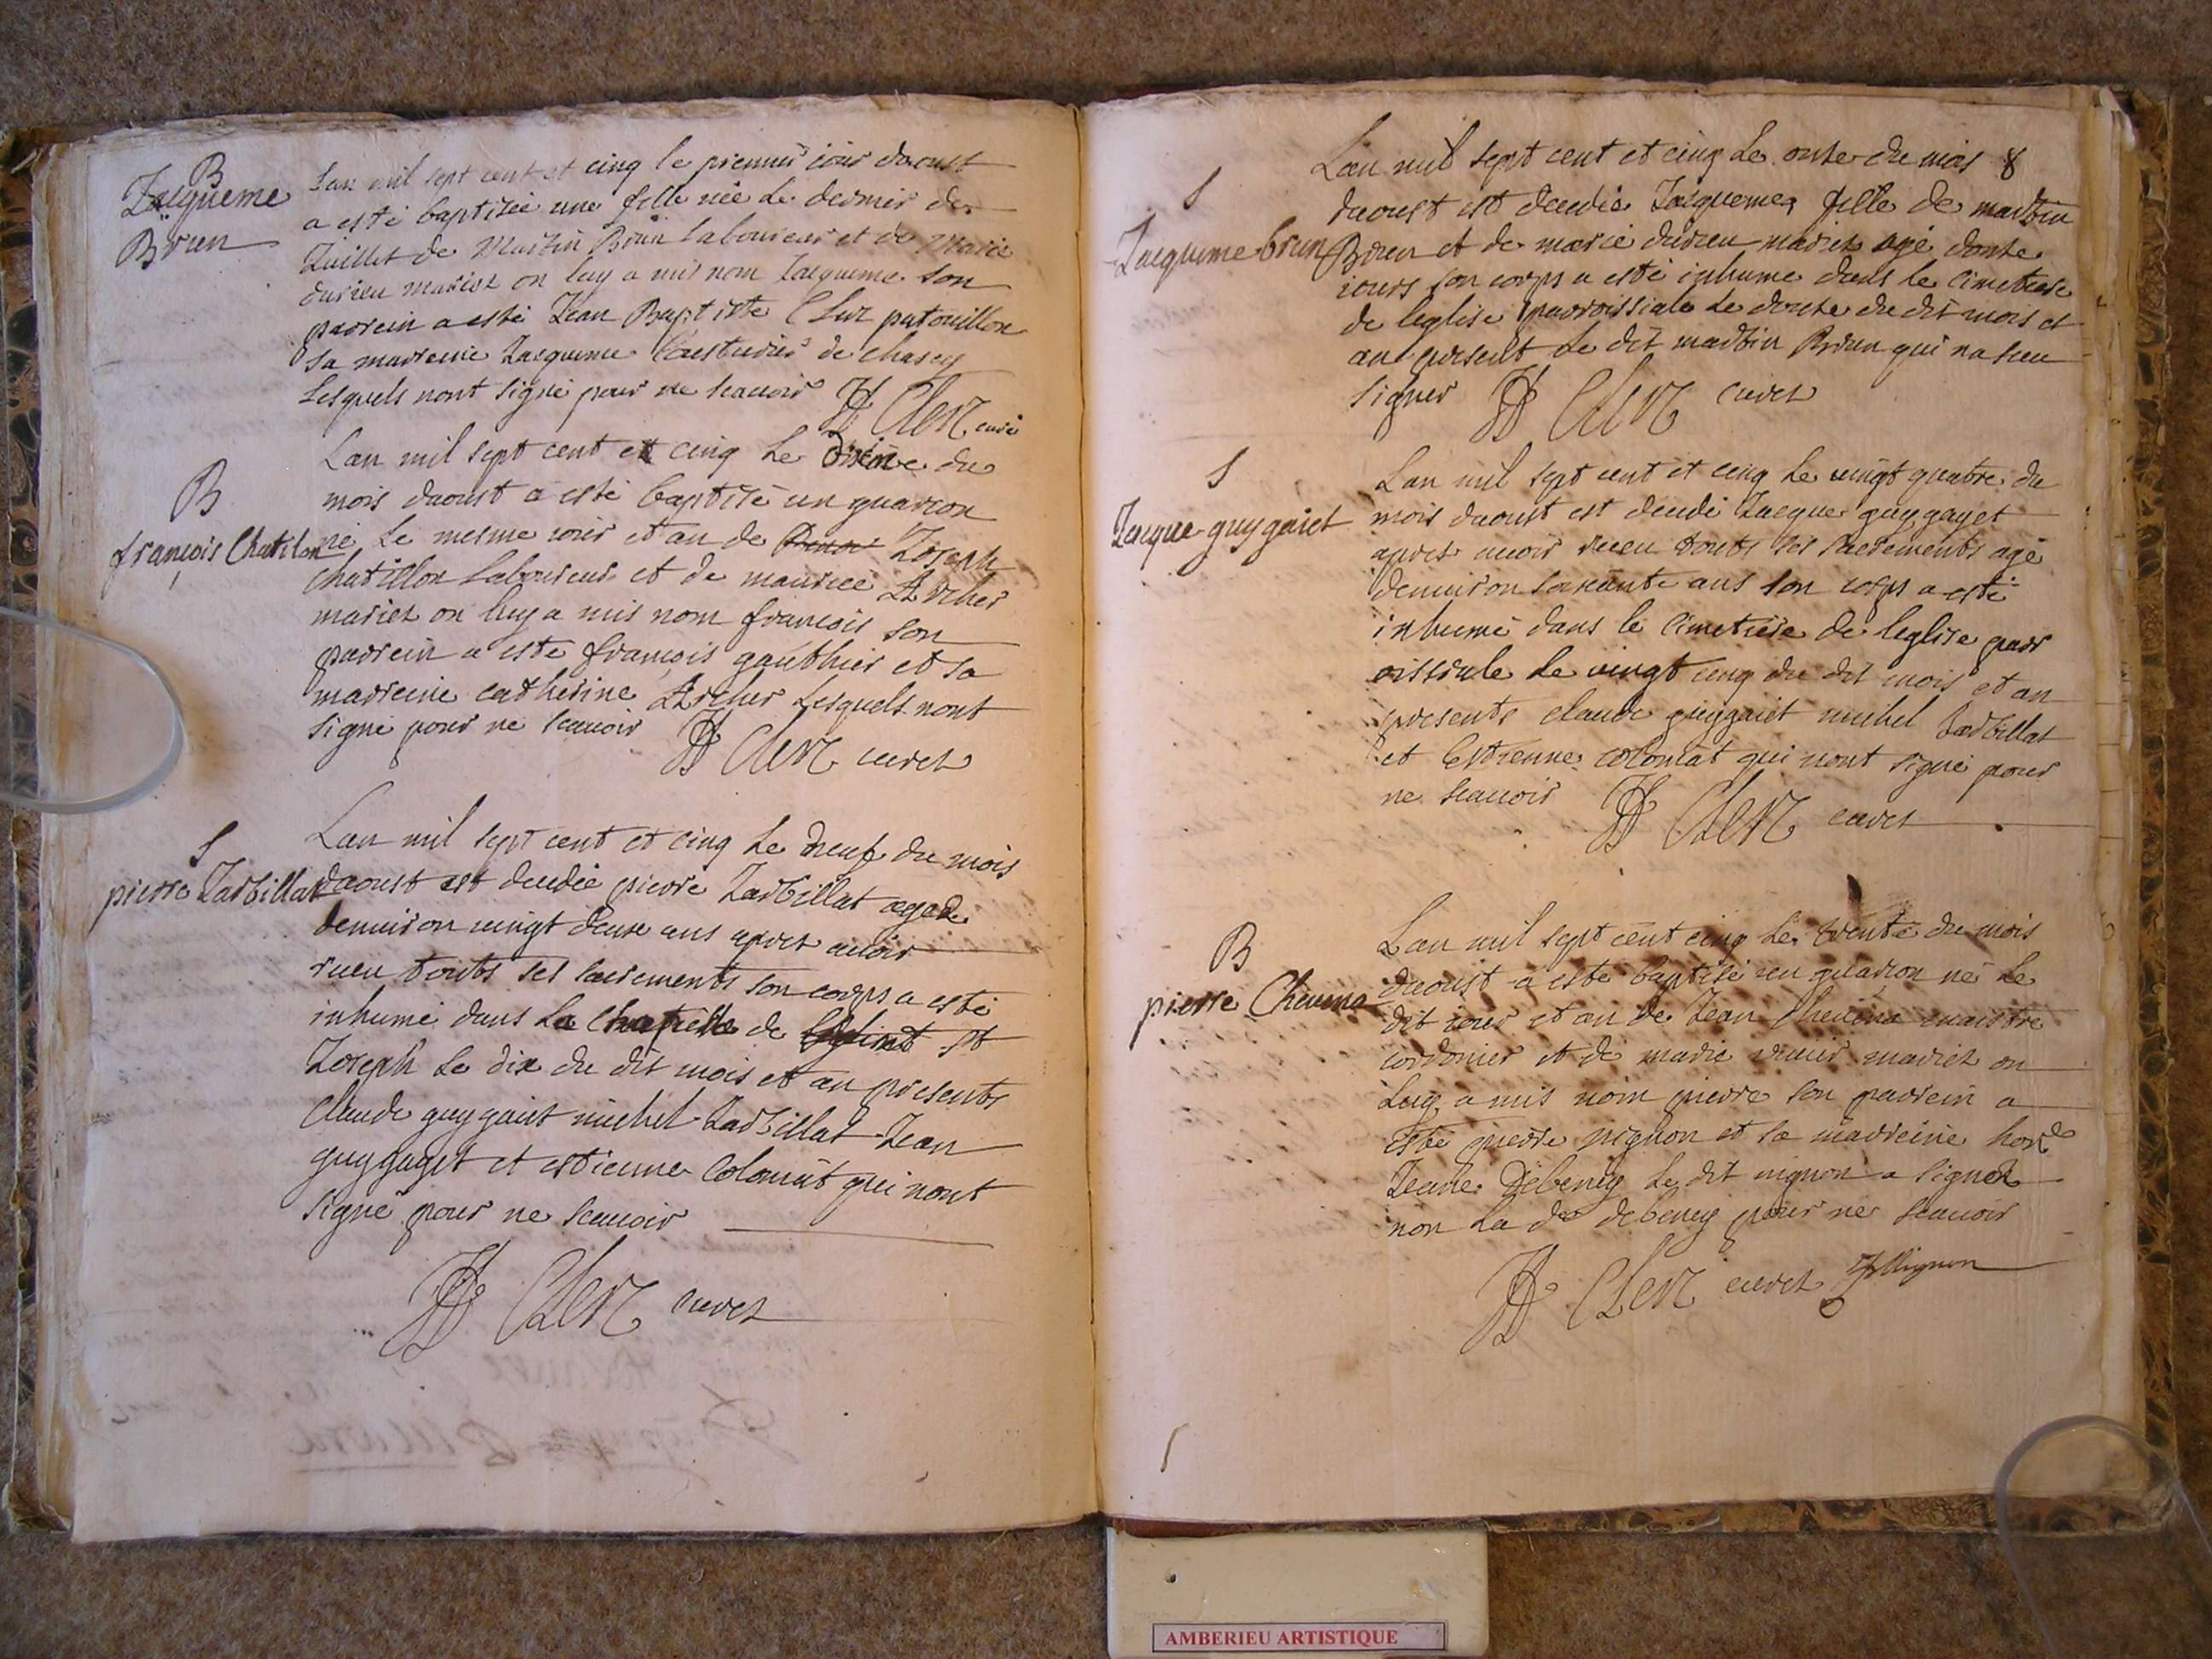 B
Jacqueme
Brun
Lan mil sept cent et cinq le premier iour daoust
a esté baptisée une fille née le dernier de
Juillet de Martin Brun Laboureur et de Marie
durieu mariez on luy a mis nom Jacqueme son
parrein a esté Jean Baptiste patouillon
sa marreine Jacqueme de chasey
Lesquels nont signé pour ne scauoir JJ Clerc curé
B
françois Chatilon
Lan mil sept cent et cinq Le du
mois daoust a esté baptisé un guarcon
né Le mesme iour et an de Joseph
chatillon Laboureur et de maurice Archer
mariez on luy a mis nom francois son
parrein a este françois gauthier et sa
marreine catherine Archer Lesquels nont
signé pour ne scauoir JJ Clerc curez
S
pierre Jarbillat
Lan mil sept cent et cinq Le neuf du mois
daoust est decedée pierre Jarbillat agede
denuiron uingt deuse ans aprez auoir
receu touts ses sacrements son corps a esté
inhumé dans La Chapelle de st
Joseph Le dix du dit mois et an presents
Claude guygaiet michel Jarbillat Jean
guygaget et estienne Colomat qui nont
signé pour ne scauoir
JJ Clerc curez
8
S
Jacqueme brun
Lan mil sept cent et cinq Le onse du mois
daoust est decedée Jacqueme fille de martin
Brun et de marie durieu mariez agé donse
iours son corps a esté inhumé dans le cimetiere
de leglise parroissiale Le douse du dit mois et
an present Le dit martin Brun qui na sceu
signer JJ Clerc curez
S
Jacque guygaiet
Lan mil sept cent et cinq Le uingt quatre du
mois daoust est decedé Jacque guygayet
aprez auoir receu touts ses sacrements agé
denuiron soixante ans son corps a esté
inhumé dans le cimetiere de leglise parr
oissiale Le uingt cinq du dit mois et an
presents claude guygaiet michel Jarbillat
et Estienne colomat qui nont signé pour
ne scauoir JJ Clerc curez
B
pierre Cheuena
Lan mil sept cent cinq Le trente du mois
daoust a esté baptisé un guarcon né Le
dit iour et an de Jean Cheuena maistre
cordonier et de marie mariez on
Luy a mis nom pierre son parrein a
esté pierre mignon et sa marreine hon^le
Jeane Debeney Le dit mignon a signez
non La d^e debeney pour ne scauoir
JJ Clerc curez Mignon
AMBERIEU ARTISTIQUE